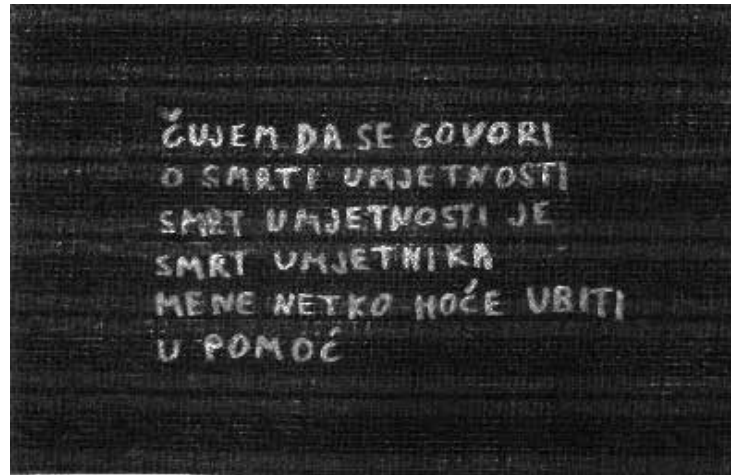 ČUJEM DA SE GOVORI
O SMRTI UMJETNOSTI
SMRT UMJETNOSTI JE
SMRT UMJETNIKA
MENE NETKO HOĆE UBITI
U POMOĆ